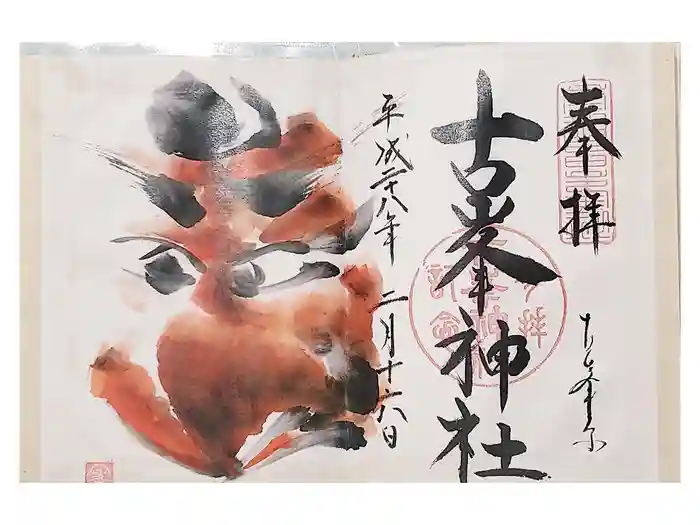 奉拝
古峯神社
平成二十八年 二月十六日